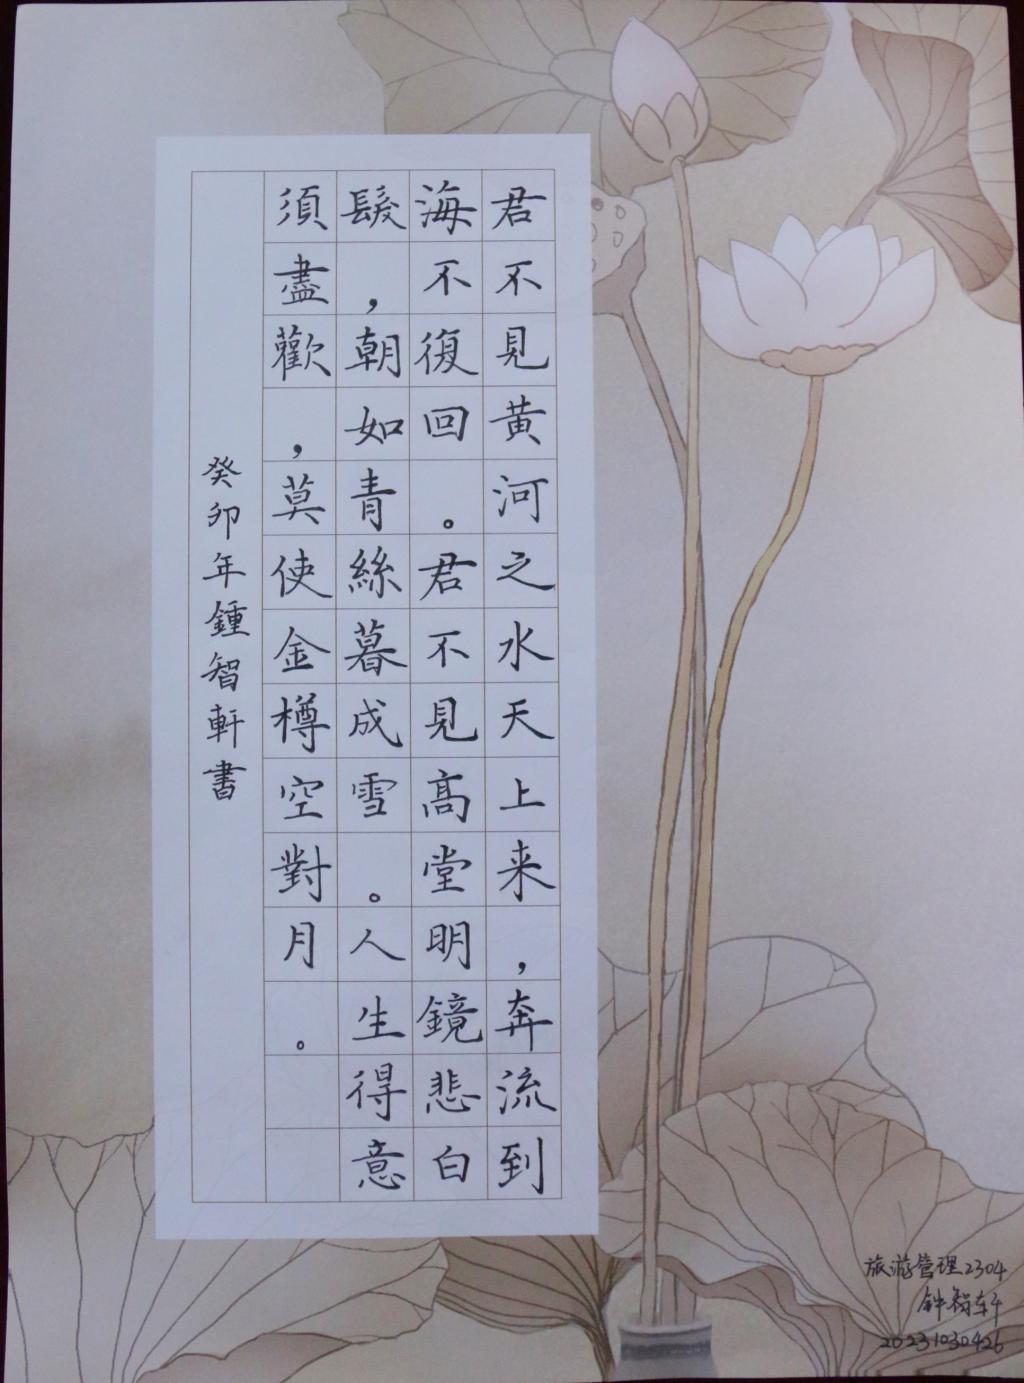 君不見黄河之水天上来，奔流到
海不復回。君不見高堂明鏡悲白
髮，朝如青絲暮成雪。人生得意
須盡歡，莫使金樽空對月。
癸卯年鍾智軒書
旅游管理2304
钟智轩
20231030426